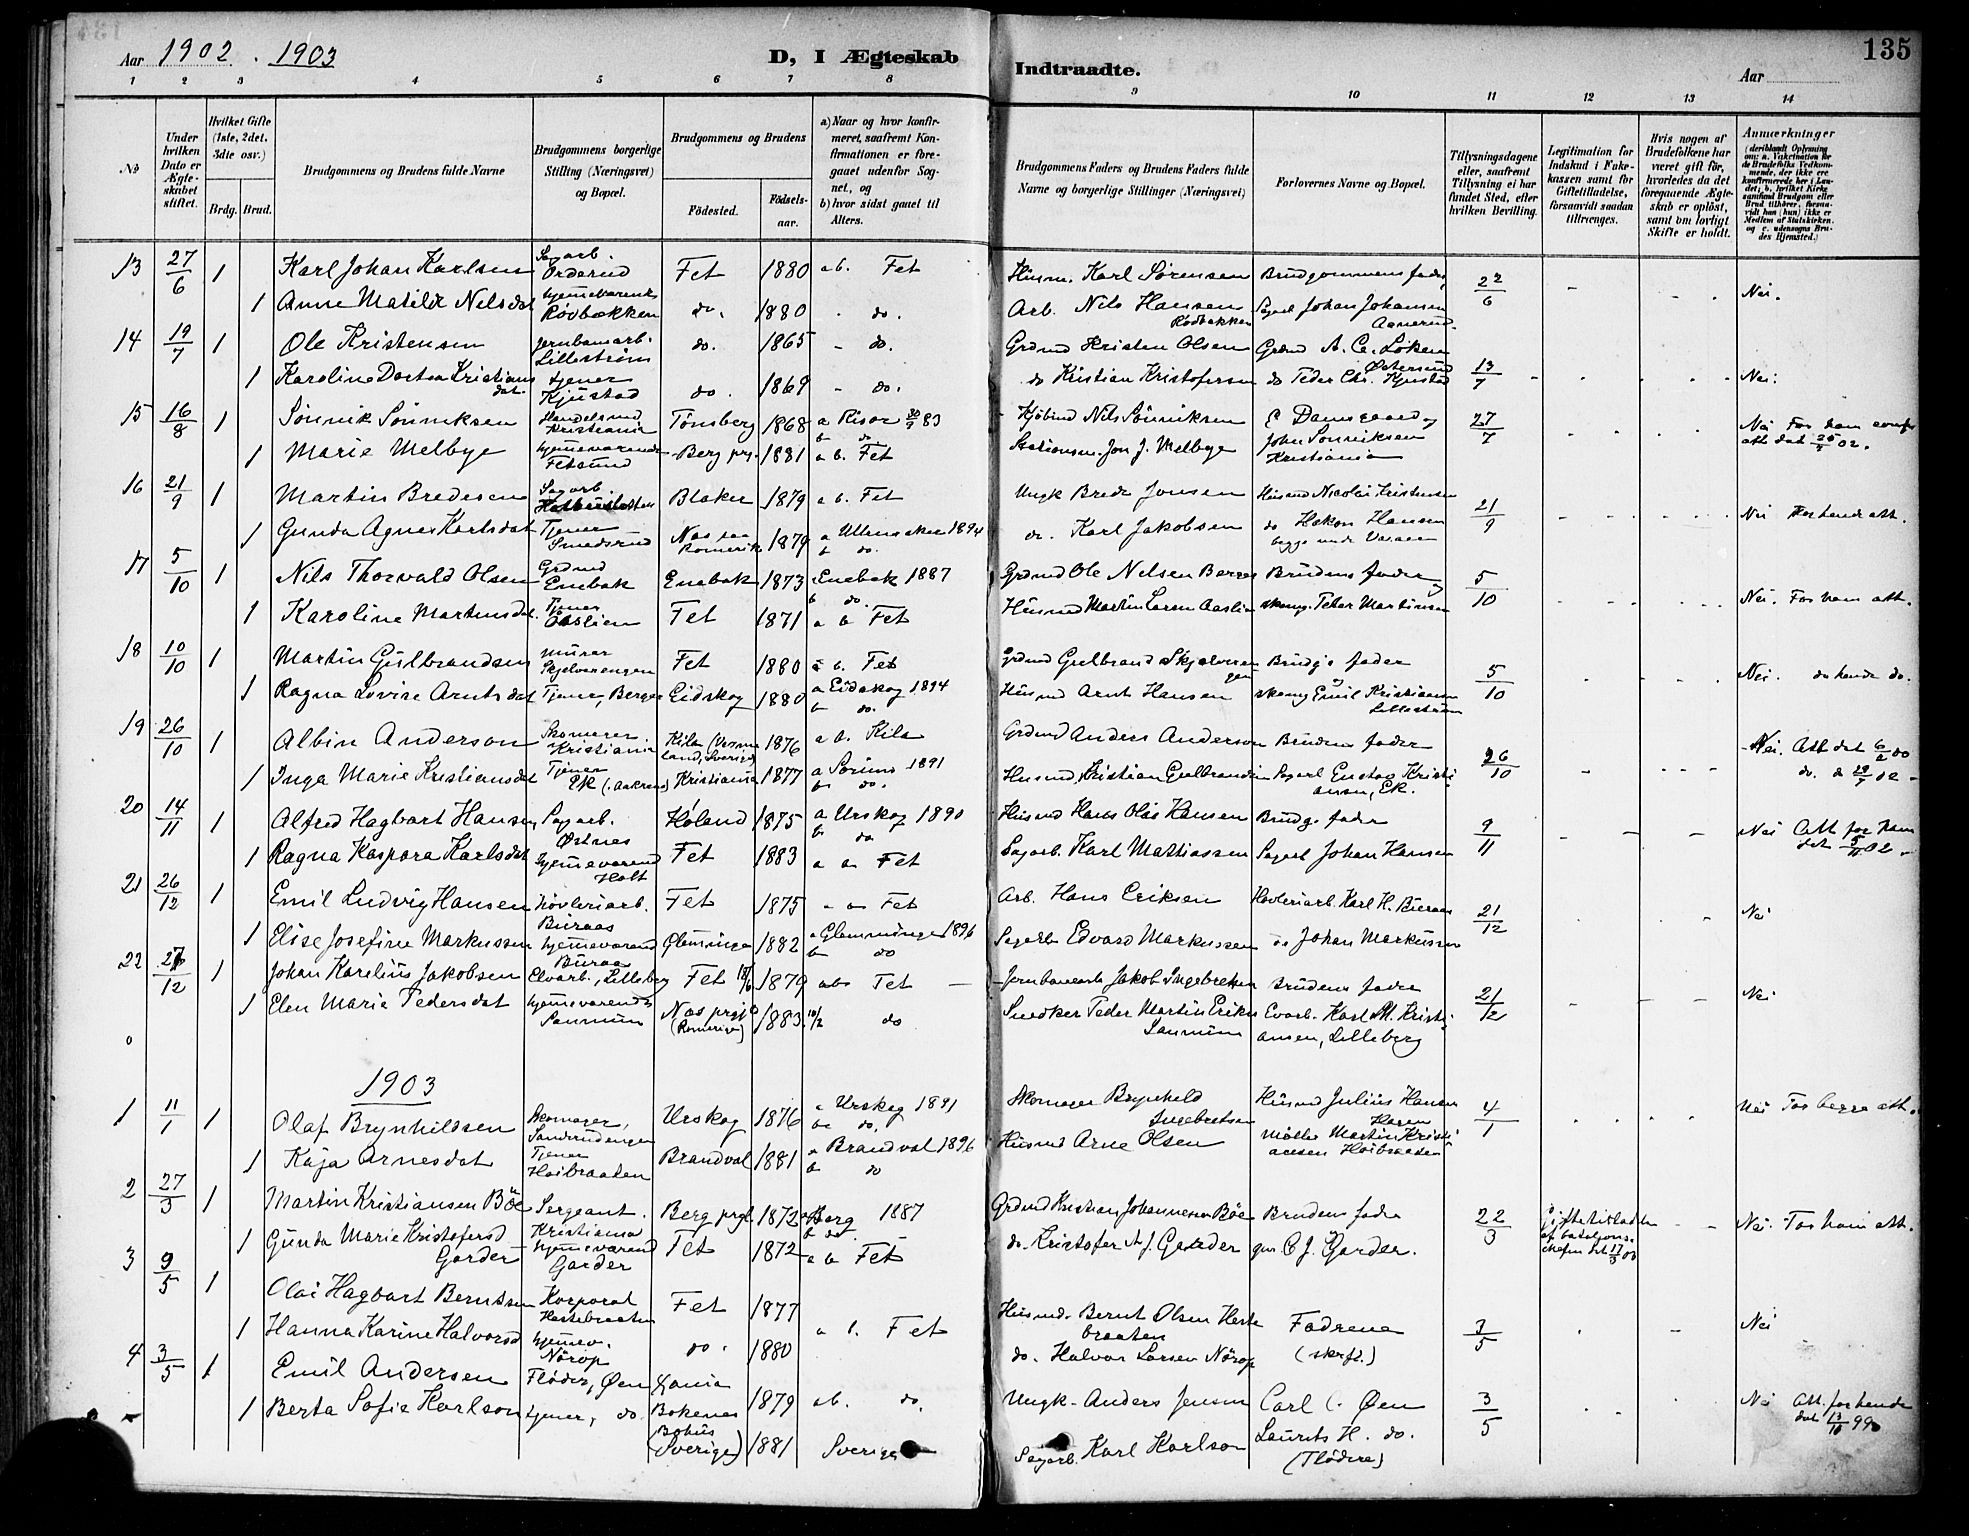 135
Aar 1902 . 1903
D, I Ægteskab
Indtraadte.
Aar
1 2 3 4 5 6 7 8 9 10 11 12 13 14
No
Under hvilken Dato er Ægteskabet stiftet.
Hvilket Gifte (1ste, 2det, 3die osv.)
Brdg. Brud.
Brudgommens og Brudens fulde Navne
Brudgommens borgerlige Stilling (Næringsvei) og Bopæl.
Brudgommens og Brudens
Fødested.
Fødselsaar.
a) Naar og hvor konfirmeret, saafremt Konfirmationen er foregaaet udenfor Sognet, og
b) hvor sidst gaaet til Alters.
Brudgommens Faders og Brudens Faders fulde Navne og borgerlige Stillinger (Næringsvei)
Forlovernes Navne og Bopæl.
Tillysningsdagene eller, saafremt Tillysning ei har fundet Sted, efter hvilken Bevilling.
Legitimation for Indskud i Enkekassen samt for Giftetilladelse, forsaavidt saadan tiltrænges.
Hvis nogen af Brudefolkene har været gift før, hvorledes da det foregaaende Ægteskab er opløst, samt om lovligt Skifte er holdt.
Anmærkninger
13 27/6 1 Karl Johan Karlsen Sagarb. Orderud Fet 1880 ab. Fet Husm. Karl Sørensen Brudgommens fader 22/6 Nei.
1 Anne Matilde Nilsdat hjemmeværende Rövbakken do. 1880 - do. Arb. Nils Hansen Rödbakken Sagarb Johan Johansen
14 19/7 1 Ole Kristensen jernbanearb. Lillestrøm do. 1865 - do. Grdmd Kristen Olsen Grdmd A. C. Løken Østersund 13/7
1 Karoline Dortea Kristiansdat. tjener Kjustad do. 1869 - do. do Kristian Kristofersen do Peder Chr. Kjustad Nei.
15 16/8 1 Sönnik Sönniksen Handelsmd Kristiania Tönsberg 1868 a Risør 83 b do Kjöbmd Nils Sönniksen E Damgaard og 27/7 Nei For ham
1 Marie Melbye hjemmeværende Fetsund Berg prg. 1881 a b. Fet Stationsm. Jon J. Melbye John Sönniksen Kristiania
16 21/9 1 Martin Bredesen Sagarb. Blaker 1879 a b. Fet Ungk Brede Jonsen Husmd Nicolai Kristensen 21/9 Nei For hende att.
1 Gunda Agnes Karlsdat Tjener Smedsrud Nas paa Romerik 1879 a Ullensaker 1894 b do. do. Karl Jakobsen do Hakon Hansen
17 5/10 1 Nils Thorvald Olsen Grdmd Enebak Enebak 1873 a Enebak 1887 b do. Grdmd Ole Nilsen Berger Brudens fader 5/10 Nei. For ham att.
1 Karoline Martinsdat. Tjener Aaslien Fet 1871 a b Fet Husmd Martin Larsen Aaslien skomg. Peter Martinsen
18 10/10 1 Martin Gulbrandsen murer Skjelverengen Fet 1880 a b. Fet Grdmd Gulbrand Skjelverengen Brudg's fader 5/10 Nei. do hende do.
1 Ragna Lovise Arntsdat Tjener, Berger Eidskog 1880 a Eidskog 1894 b do. Husmd Arnt Hansen skomg Emil Kristiansen Lillestrøm
19 26/10 1 Albin Anderson Skomager Kristiania Kila (Vermland, Sverige) 1876 a b. Kila Grdmd Anders Anderson Brudens fader 26/10 Nei. Att dat 6/2 00
1 Inga Marie Kristiansdat Tjener Ek Kristiania 1877 a Sørum 1891 b do. Husmd Kristian Gulbrandsen Sagarb Gustav Kristiansen, Ek.
20 14/11 1 Alfred Hagbart Hansen Sagarb. Østnes Høland 1875 a Urskog 1890 b do Husmd Hans Olai Hansen Brudgs fader 9/11 Nei Att for ham dat 5/11 02
1 Ragna Kaspara Karlsdat hjemmeværend Holt Fet 1883 a b Fet Sagarb. Karl Mattiassen Sagarb Johan Hansen
21 26/12 1 Emil Ludvig Hansen Høvleriarb. Buraas Fet 1875 Fet Arb. Hans Eriksen Høvleriarb. Karl H. Buraas 21/12 Nei
1 Elise Josefine Markussen hjemmeværend Buraas Glemminge 1882 a Glemminge 1896 b do Sagarb Edvard Markussen do Johan Markussen
22 12 1 Johan Karelius Jakobsen Elvarb., Lilleberg Fet 1879 ab Fet Jernbanearb Jakob Ingebretsen Brudens fader 21/12 Nei
1 Elen Marie Pedersdat hjemmeværende Sannum Nas prgj (Romerike) 1883. do Snedker Peder Martin Eriksen Sannum Elvarb. Karl M. Kristiansen, Lilleberg
1903
1 11/1 1 Olaf Brynhildsen Skomager, Sandrudengen Urskog 1876 a Urskog 1891 b do. Skomager Brynhild Ingebretsen Husmd Julius Hansen 4/1 Nei For begge att.
1 Kaja Arnesdat Tjener Høibraaten Brandval 1881 a Brandval 1896 b do Husmd Arne Olsen Møller Martin Kristiansen Høibraaten
2 27/3 1 Martin Kristiansen Böe Sergeant. Kristiania Berg prgl 1872 a Berg 1887 b do. Grdmd Kristian Johannesen Böe Brudens fader 22/3 Giftetilladelse af bataljonschefen dat 17/3 03 Nei. For ham att.
1 Gunda Marie Kristofersd Garder hjemmeværend Garder Fet 1872 a b Fet do. Kristofer A. J. Garder C J. Garder.
3 9/5 1 Olai Hagbart Berntsen Korporal Hestebraaten Fet 1877 Husmd. Bernt Olsen Hestebraaten Fædrene (skrftl.) 3/5 Nei
1 Hanna Karine Halvorsd hjemmev. Nörop do. 1880 a b. Fet do. Halvor Larsen Nörop
4 3/5 1 Emil Andersen Fløder, Øen 1879 ab. do. Ungk. Anders Jensen Carl C. Øen 3/5 Nei Att. for hende dat 13/10 99
1 Berta Sofie Karlson tjener, do. Bokenes Bohus (Sverige) 1881 Sverige Sagarb. Karl Karlson Laurits H. do. (Flødere)